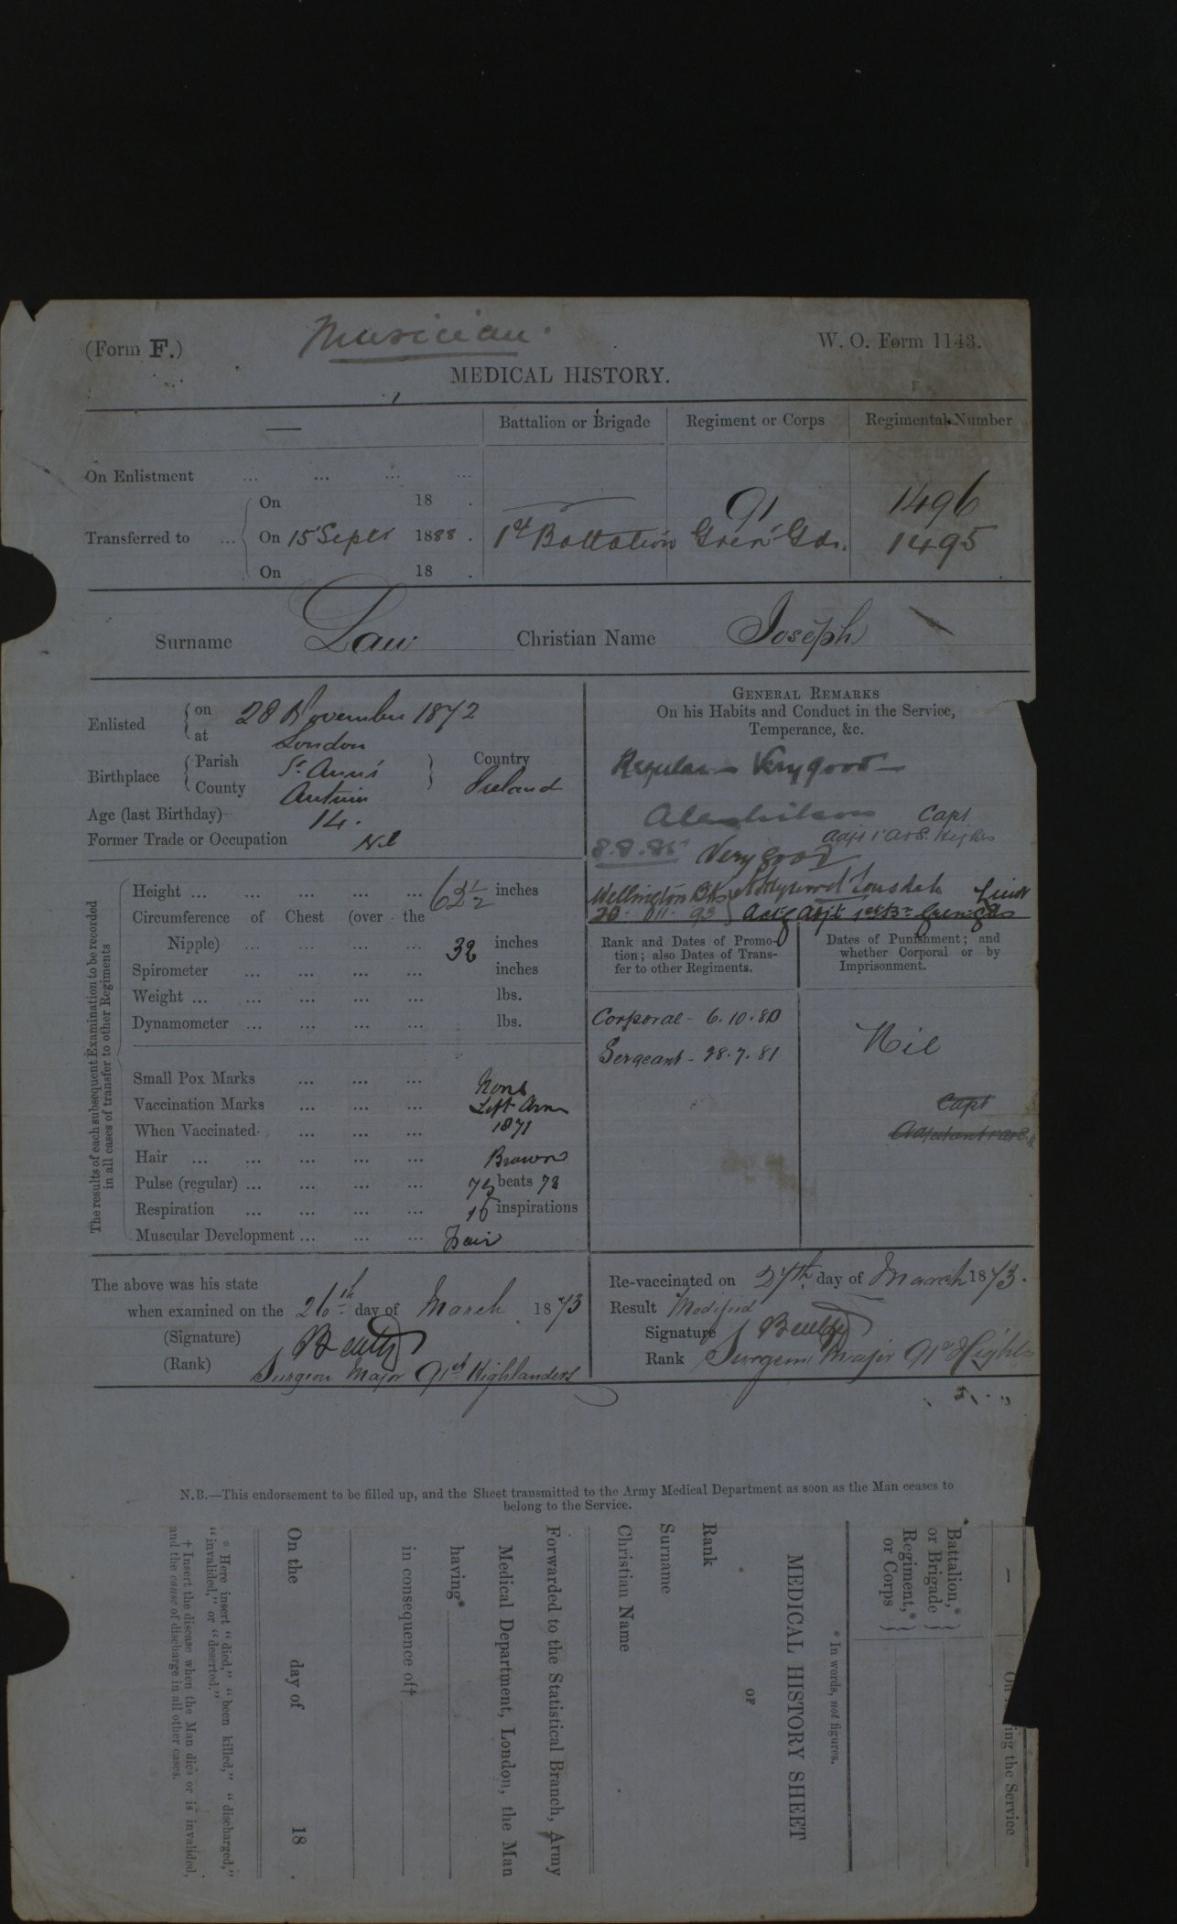 (Form F.)
Musician
W. O. Form 1143.
MEDICAL HISTORY.
Battalion or Brigade
Regiment or Corps
Regimental Number
On Enlistment ... ... ... ...
91
1496
Transferred to ...
On 18 .
On 15 Septr 1888 . 1st Battalion Gren. Gds. 1495
On 18 .
Surname Law Christian Name Joseph
Enlisted on 28 November 1872
at London
Birthplace Parish St. Ann's Country
County Antrim Ireland
Age (last Birthday) 14.
Former Trade or Occupation Nil
The results of each subsequent Examination to be recorded
in all cases of transfer to other Regiments
Height ... ... ... ... ... 62½ inches
Circumference of Chest (over the
Nipple) ... ... ... ... 32 inches
Spirometer ... ... ... ... inches
Weight ... ... ... ... ... lbs.
Dynamometer ... ... ... ... lbs.
Small Pox Marks ... ... ... None
Vaccination Marks ... ... ... Left Arm
When Vaccinated ... ... ... 1871
Hair ... ... ... ... ... Brown
Pulse (regular) ... ... ... ... beats 78
Respiration ... ... ... ... 16 inspirations
Muscular Development ... ... ... Fair
The above was his state
when examined on the 26th day of March 1873
(Signature)
(Rank) Surgeon Major 91st Highlanders
GENERAL REMARKS
On his Habits and Conduct in the Service,
Temperance, &c.
Regular — Very good —
Capt
8.8.85 Very good
Wellington Bks Lieut
Actg Adjt 1st Bn Gren Gds
Rank and Dates of Promo-
tion; also Dates of Trans-
fer to other Regiments.
Corporal - 6.10.80
Sergeant - 28.7.81
Dates of Punishment; and
whether Corporal or by
Imprisonment.
Nil
Capt
Re-vaccinated on 27th day of March 1873.
Result Modified
Signature
Rank Surgeon Major 91st Highls
N.B.—This endorsement to be filled up, and the Sheet transmitted to the Army Medical Department as soon as the Man ceases to
belong to the Service.
ing the Service
Battalion,*
or Brigade
Regiment,*
or Corps
* In words, not figures.
MEDICAL HISTORY SHEET
OF
Rank
Surname
Christian Name
Forwarded to the Statistical Branch, Army
Medical Department, London, the Man
having*
in consequence of†
On the day of 18 .
* Here insert "died," "been killed," "discharged,"
"invalided," or "deserted."
† Insert the disease when the Man dies or is invalided,
and the cause of discharge in all other cases.